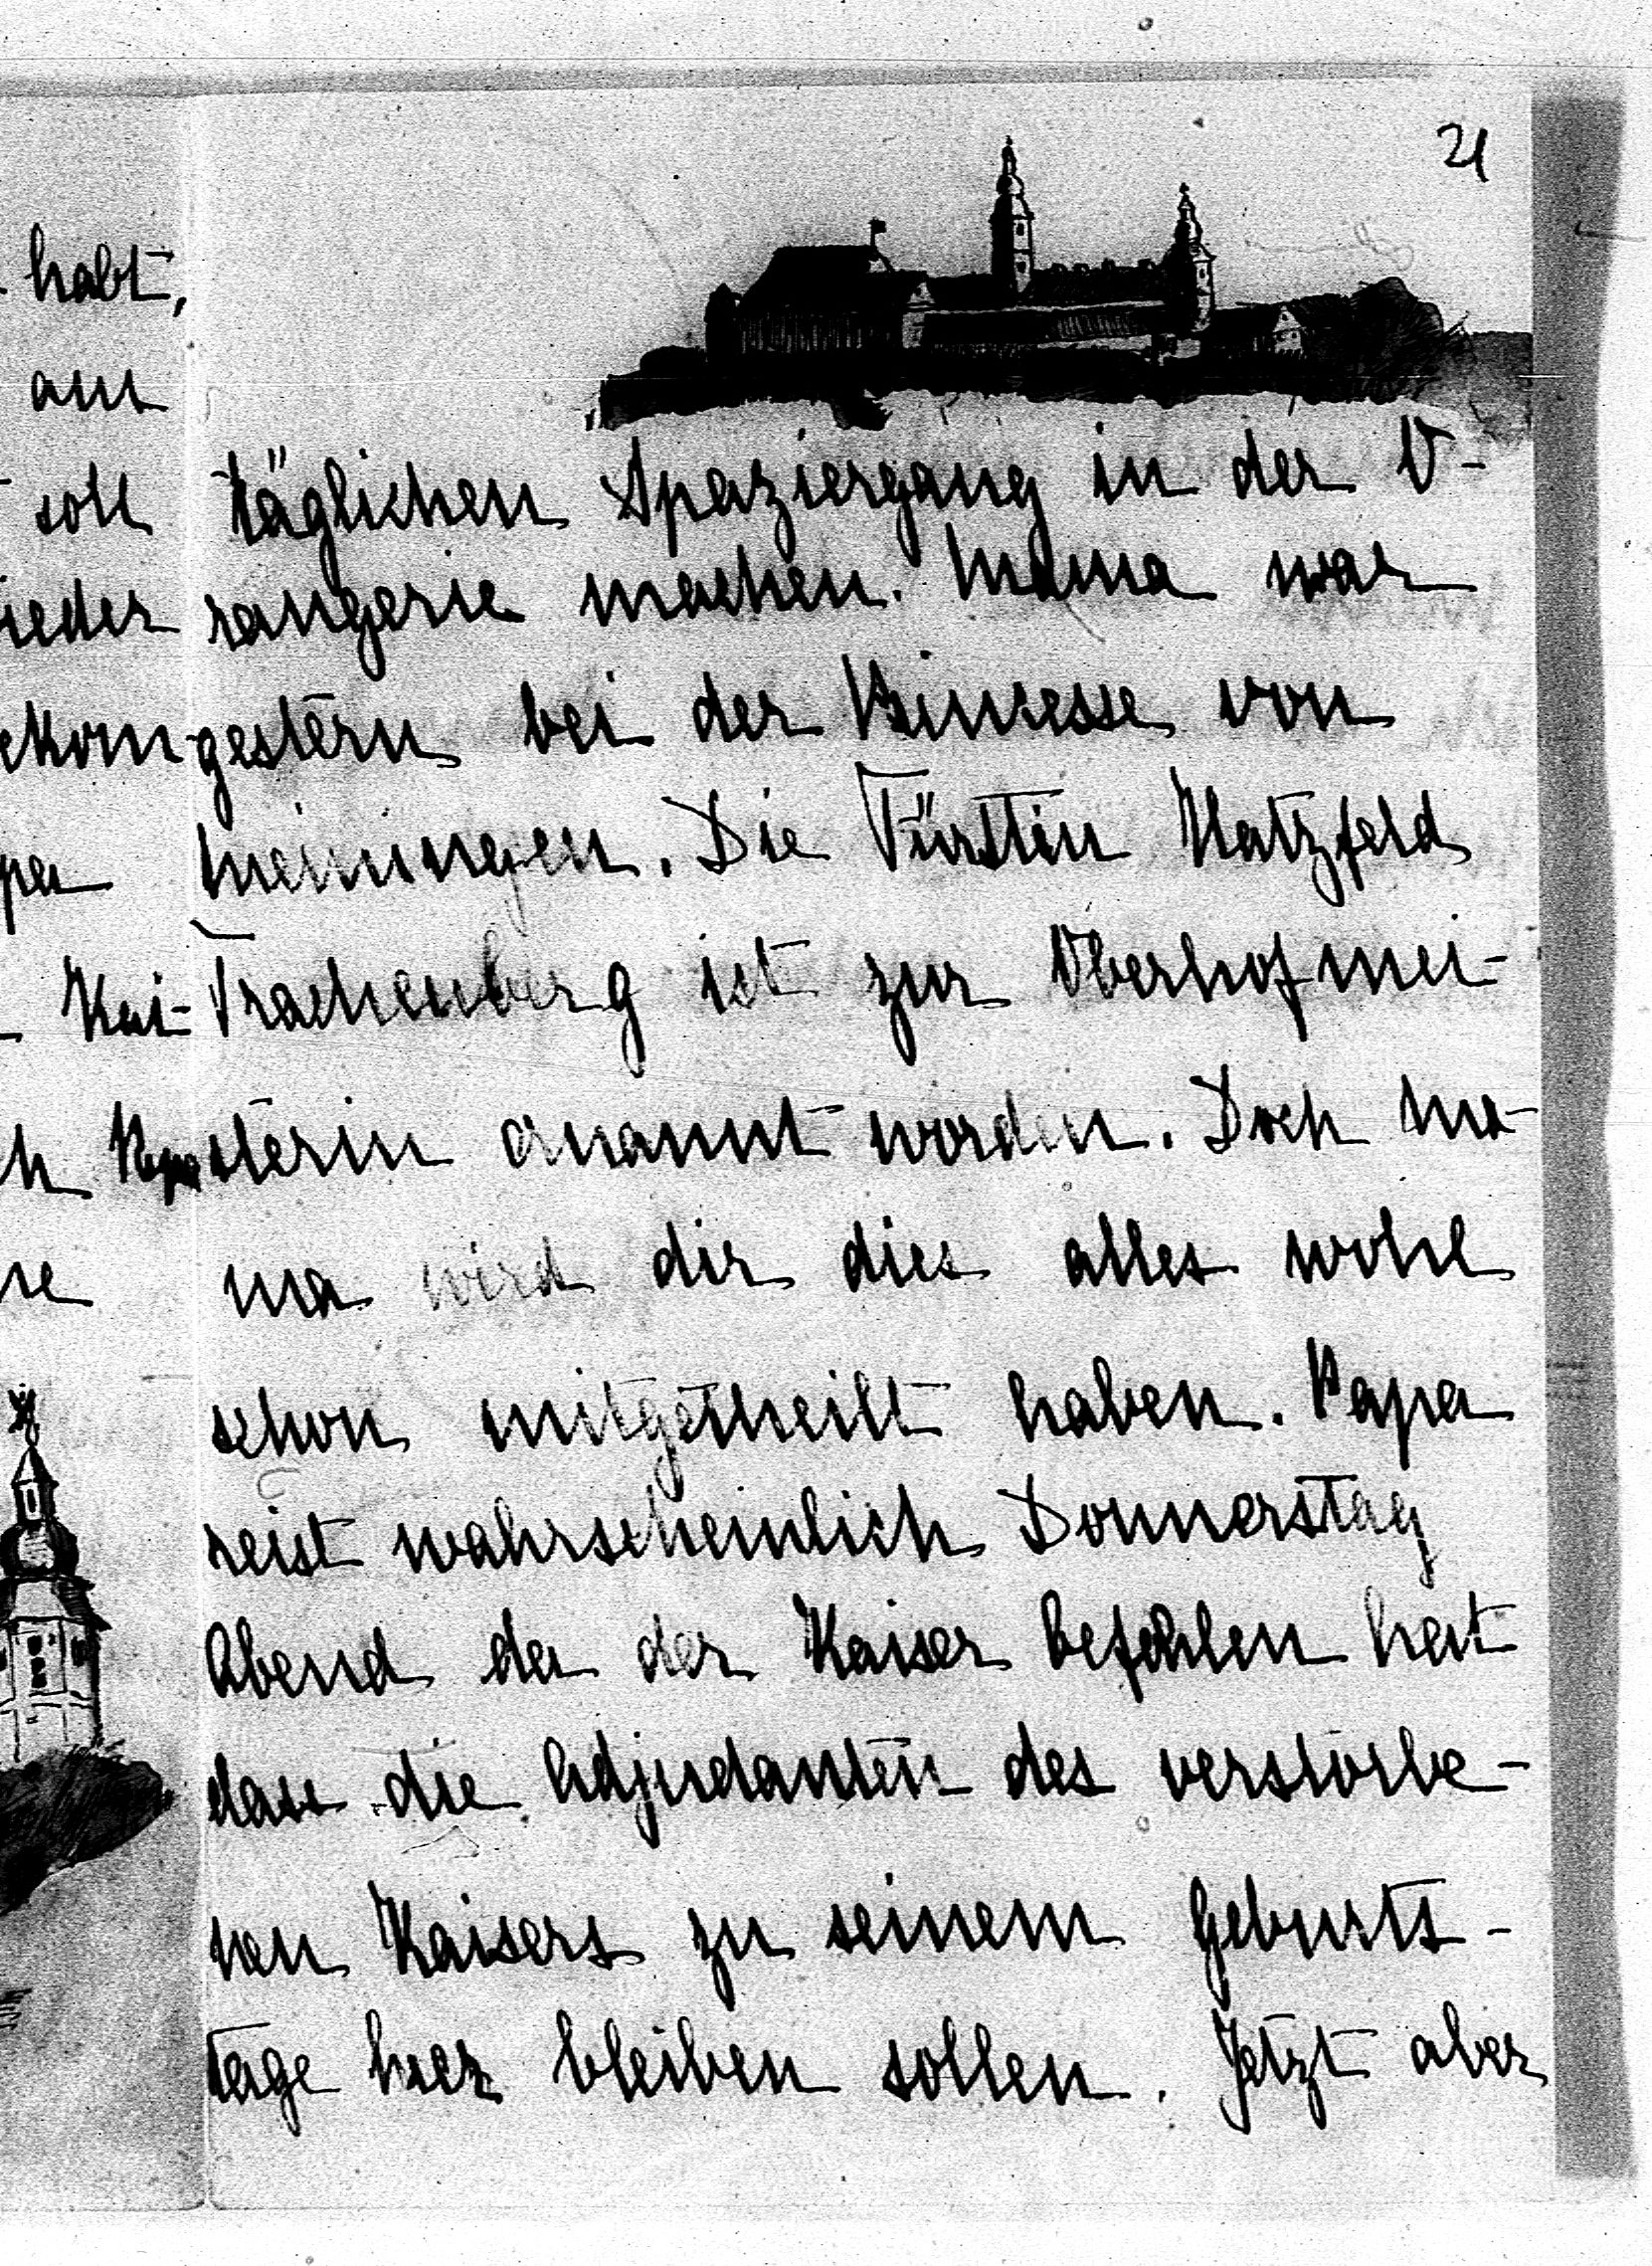 21
habt,
am
soll
ieder
ekom-
pa
Kai-
h
re
täglichen Spaziergang in der O-
rangerie machen. Mama war
gestern bei der Prinzesse von
Meiningen. Die Fürstin Hatzfeld
Trachenberg ist zur Oberhofmei-
sterin ernannt worden. Doch Ma-
ma wird dir dies alles wohl
schon mitgetheilt haben. Papa
reist wahrscheinlich Donnerstag
Abend da der Kaiser befohlen hat
dass die Adjudanten des verstorbe-
nen Kaisers zu seinem Geburts-
tage hier bleiben sollen. Jetzt aber